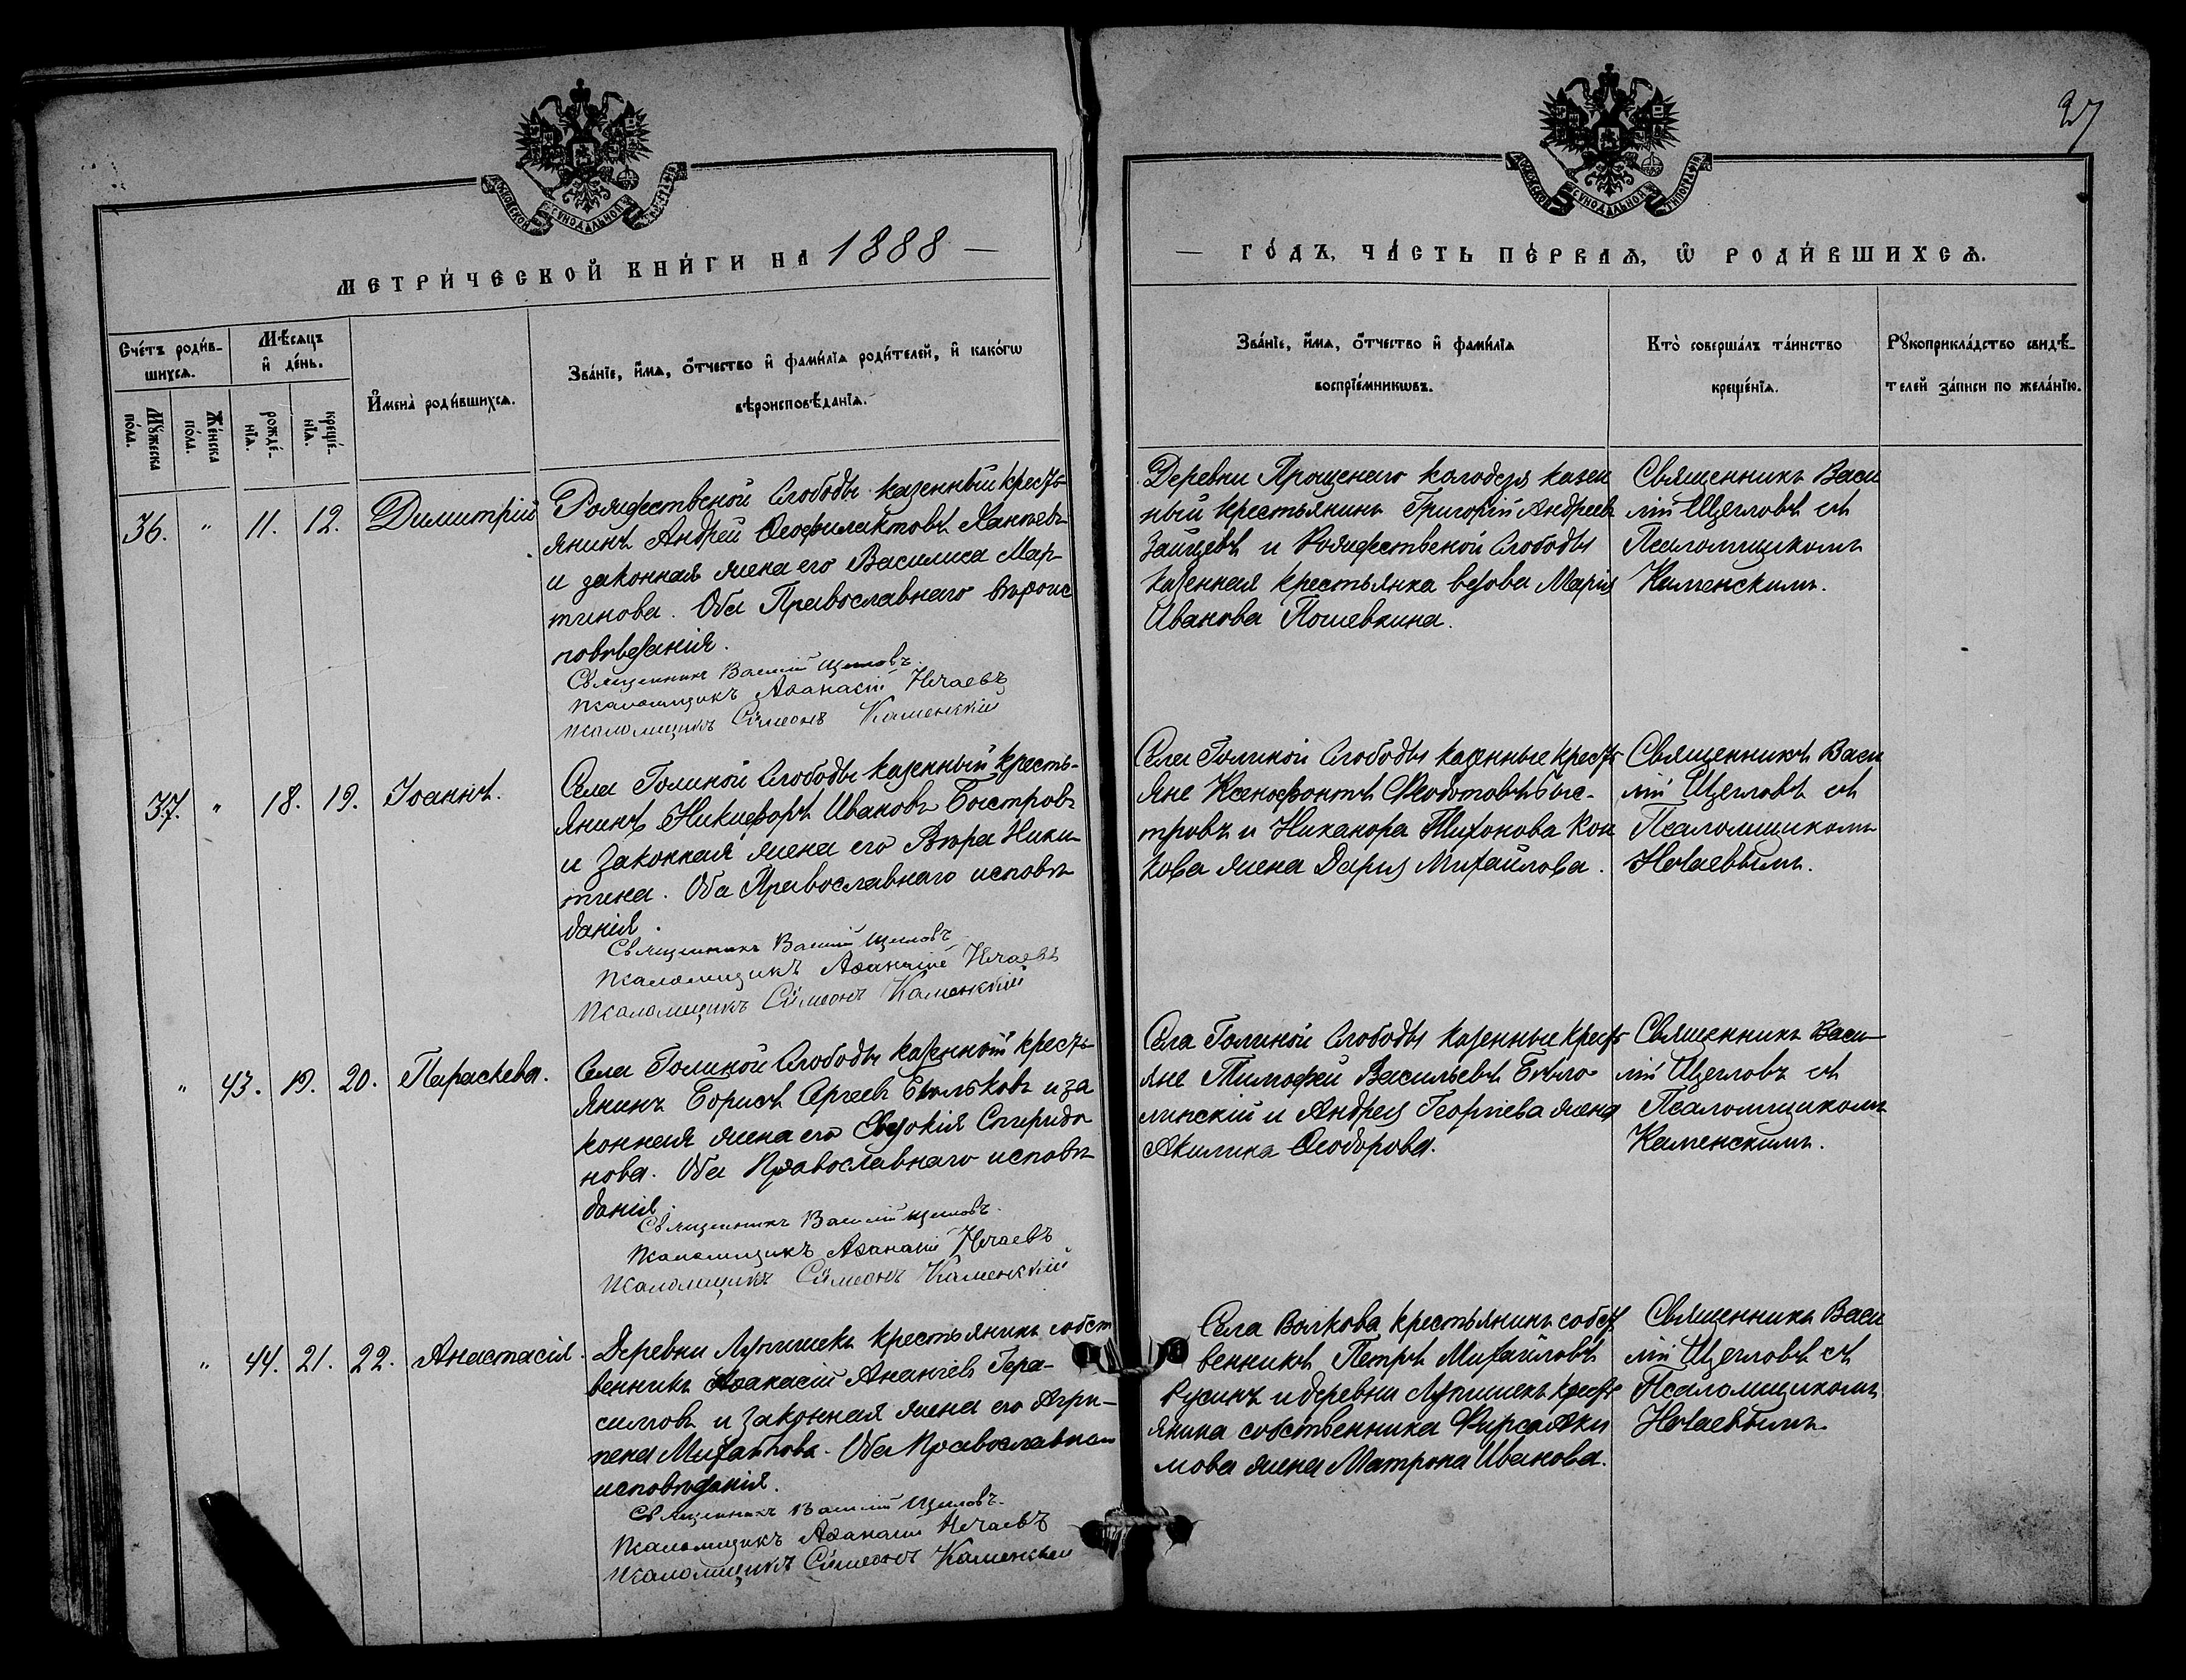 27
МОСКОВСКОЙ СѴНОДАЛЬНОЙ ТИПОГРАФІИ
МОСКОВСКОЙ СѴНОДАЛЬНОЙ ТИПОГРАФІИ
МЕТРИ́ЧЕСКОЙ КНИ́ГИ НА 1888 —
— ГО́ДЪ, ЧА́СТЬ ПЕ́РВАѦ, Ѿ РОДИ́ВШИХСѦ.
Сче́тъ роди́в-
шихсѧ.
Мꙋ́жеска
по́ла.
Же́нска
по́ла.
Мѣ́сѧцъ
и҆ де́нь.
рожде́-
нїѧ.
креще́-
нїѧ.
И҆мена̀ роди́вшихсѧ.
Зва́нїе, и҆́мѧ, ѻ҆́тчество и҆ фами́лїѧ роди́телей, и҆ како́гѡ
вѣроисповѣ́данїѧ.
Зва́нїе, и҆́мѧ, ѻ҆́тчество и҆ фами́лїѧ
воспрїе́мникѡвъ.
Кто̀ соверша́лъ та́инство
креще́нїѧ.
Рꙋкоприкла́дство свидѣ́-
телей за́писи по жела́нїю.
36. " 11. 12. Димитрій
Рождественой Слободы казенный кресть
янинъ Андрей Ѳеофилактовъ
и законная жена его Василиса Мар-
тинова. Оба Православнаго вѣроис
повѣданія.
Священникъ Василій Щегловъ.
Псаломщикъ Аѳанасій Нечаевъ
Псаломщикъ Сѵмеонъ Каменскій
Деревни Прощенаго колодезя казен
ный крестьянинъ Григорій Андреев
Зайцевъ и Рождественой Слободы
казенная крестьянка вдова Марія
Иванова Пошевкина.
Священникъ Васи
лій Щегловъ съ
Псаломщикомъ
Каменскимъ.
37. " 18. 19. Іоаннъ.
Села Голиной Слободы казенный кресть-
янинъ Никифоръ Ивановъ Быстровъ
и законная жена его Вѣра Ники-
тина. Оба Православнаго исповѣ
данія.
Священникъ Василій Щегловъ
Псаломщикъ Аѳанасій Нечаевъ
Псаломщикъ Сѵмеонъ Каменскій
Села Голиной Слободы казенные кресть
яне Ксенофонтъ Ѳеодотовъ Быс-
тровъ и Никанора Тихонова Кон
кова жена Дарія Михайлова.
Священникъ Васи
лій Щегловъ съ
Псаломщикомъ
Нечаевымъ.
" 43. 19. 20. Параскева.
Села Голиной Слободы казенный кресть
янинъ Борисъ Сергеев и за
конная жена его Евдокія Спиридо
нова. Оба Православнаго исповѣ
данія.
Священникъ Василій Щегловъ.
Псаломщикъ Аѳанасій Нечаевъ
Псаломщикъ Сѵмеонъ Каменскій
Села Голиной Слободы казенные кресть
яне Тимофей Васильевъ Бѣло
линскій и Андрея Георгіева жена
Акилина Ѳеодорова.
Священникъ Васи-
лій Щегловъ съ
Псаломщикомъ
Каменскимъ.
" 44. 21. 22. Анастасія.
Деревни Лупишекъ крестьянинъ собст
венникъ Аѳанасій Ананіев Гера-
симовъ и законная жена его Агри-
пена Михайлова. Оба Православнаго
исповѣданія.
Священникъ Василій Щегловъ.
Псаломщикъ Аѳанасій Нечаевъ
Псаломщикъ Сѵмеонъ Каменскій
Села Волкова крестьянинъ собст
венникъ Петръ Михайловъ
Русинъ и деревни Лупишекъ кресть
янина собственника Фирса Аки
мова жена Матрона Иванова.
Священникъ Васи
лій Щегловъ съ
Псаломщикомъ
Нечаевымъ.